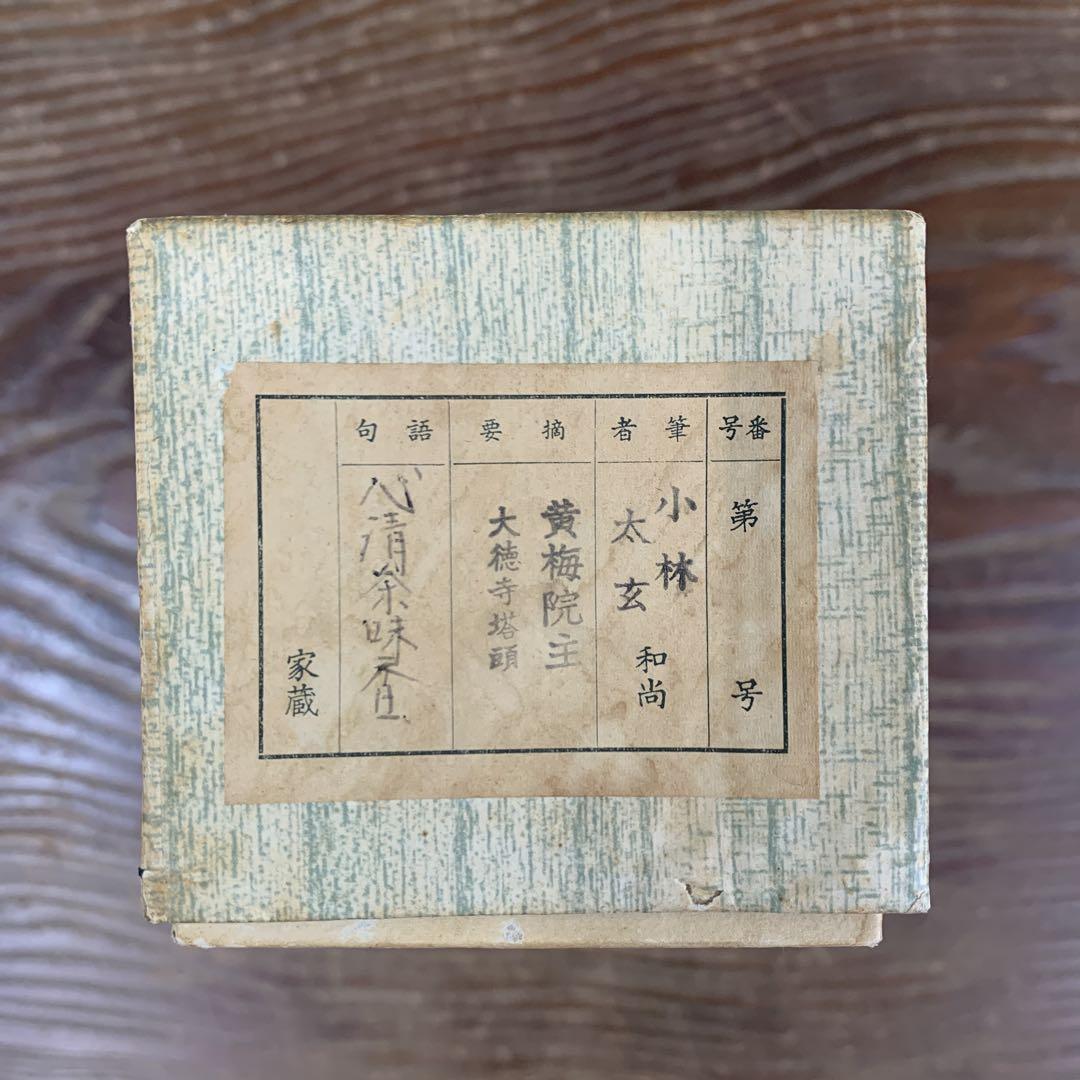 番号
第 号
筆者
小林
太玄
和尚
摘要
黄梅院主
大徳寺塔頭
語句
心清茶味香
家蔵